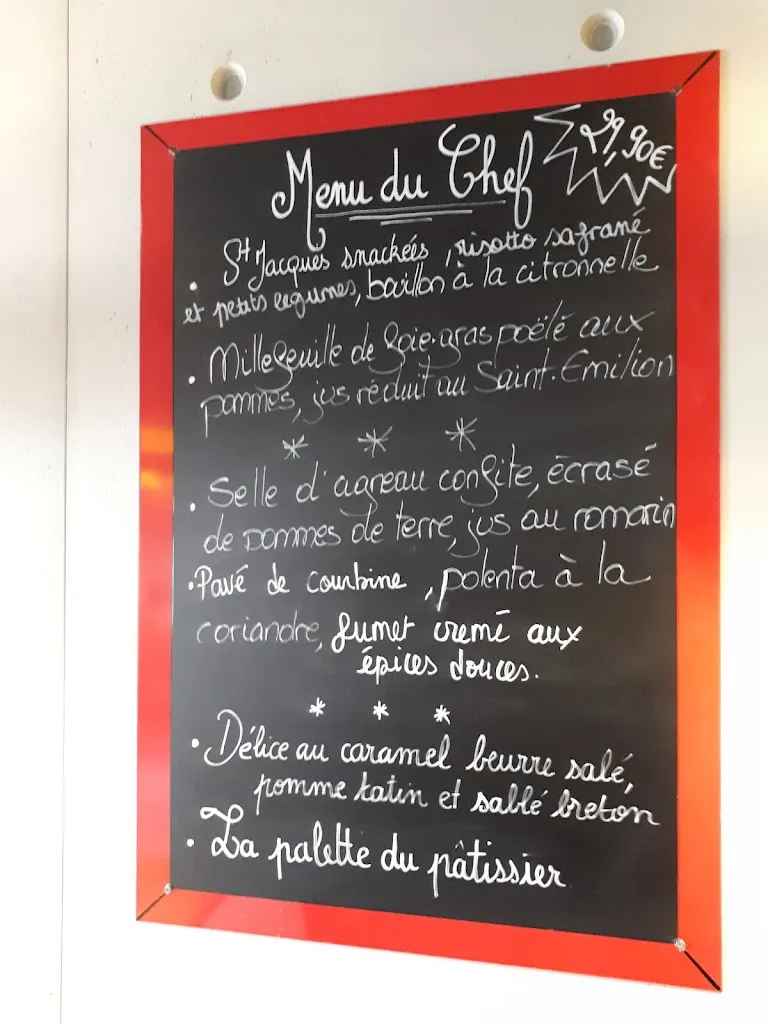 Menu du Chef 29,90€
• St Jacques snackées, risotto safrané
et petits légumes, bouillon à la citronnelle
• Millefeuille de foie-gras poëlé aux
pommes, jus réduit au Saint-Emilion
* * *
• Selle d'agneau confite, écrasé
de pommes de terre, jus au romarin
• Pavé de courbine, polenta à la
coriandre, fumet cremé aux
épices douces.
* * *
• Délice au caramel beurre salé,
pomme tatin et sablé breton
• La palette du pâtissier